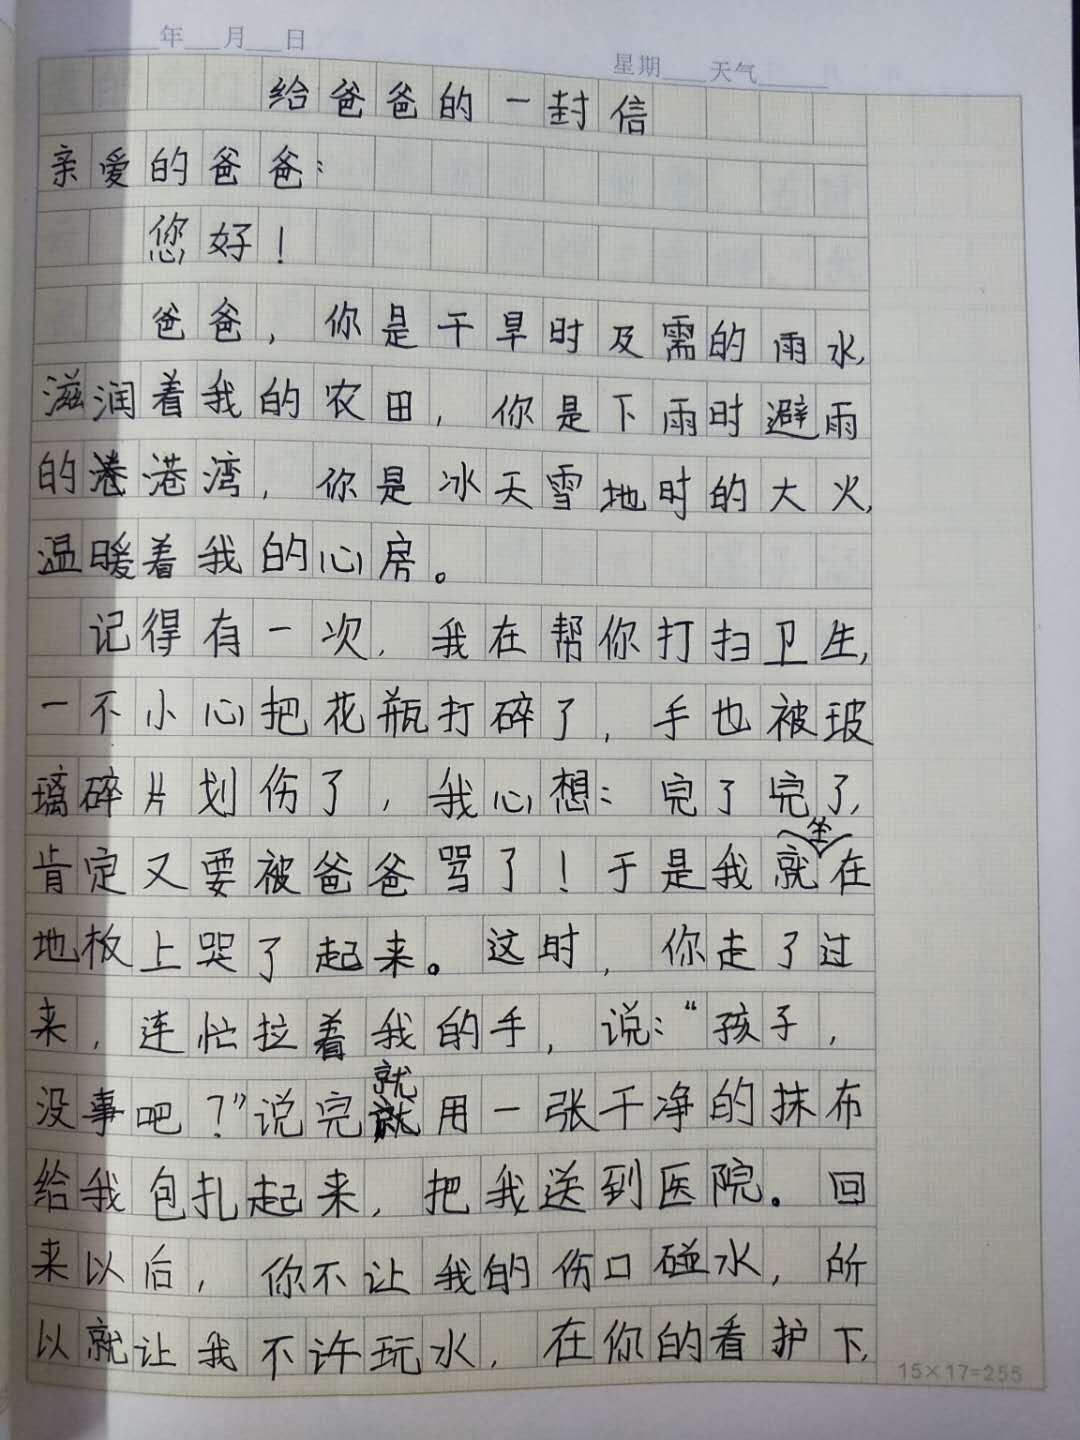 年 月 日
星期 天气
给爸爸的一封信
亲爱的爸爸：
您好！
爸爸，你是干旱时及需的雨水，
滋润着我的农田，你是下雨时避雨
的港湾，你是冰天雪地时的大火，
温暖着我的心房。
记得有一次，我在帮你打扫卫生，
一不小心把花瓶打碎了，手也被玻
璃碎片划伤了，我心想：完了完了，
肯定又要被爸爸骂了！于是我就坐在
地板上哭了起来。这时，你走了过
来，连忙拉着我的手，说：“孩子，
没事吧？”说完就用一张干净的抹布
给我包扎起来，把我送到医院。回
来以后，你不让我的伤口碰水，所
以就让我不许玩水，在你的看护下，
15×17=255